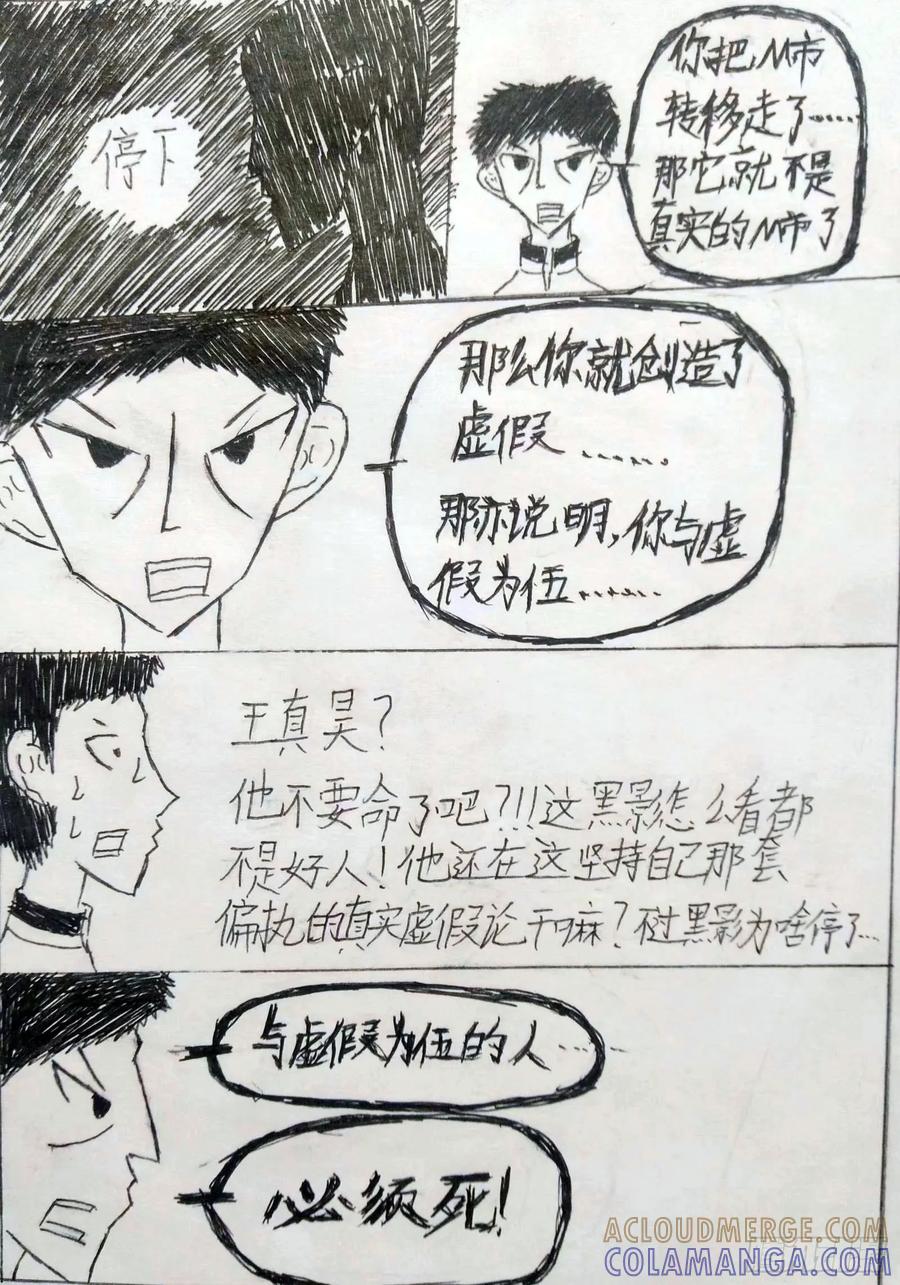 停下
你把M市
转移走了......
那它就不是
真实的M市了
那么你就创造了
虚假......
那亦说明,你与虚
假为伍......
王真昊?
他不要命了吧?!!!这黑影怎么看都
不是好人!他还在这坚持自己那套
偏执的真实虚假论干嘛?不过黑影为啥停了...
与虚假为伍的人......
必须死!
ACLOUDMERGE.COM
COLAMANGA.COM